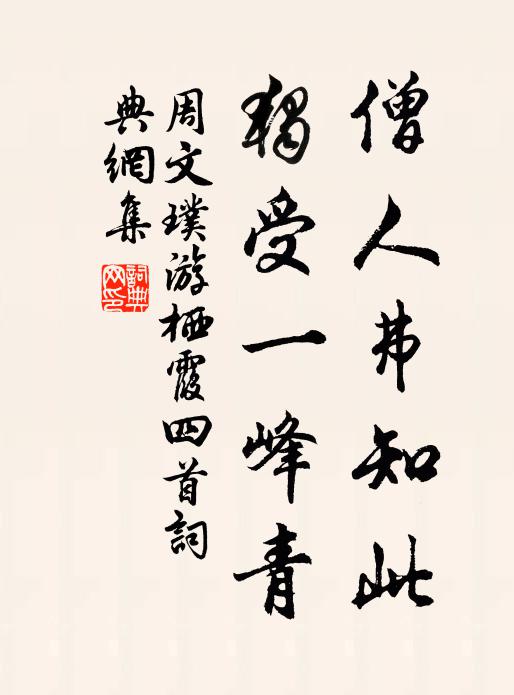 僧人弗知此
獨受一峰青
周文璞游栖霞四首詞
典網集
詞典網印